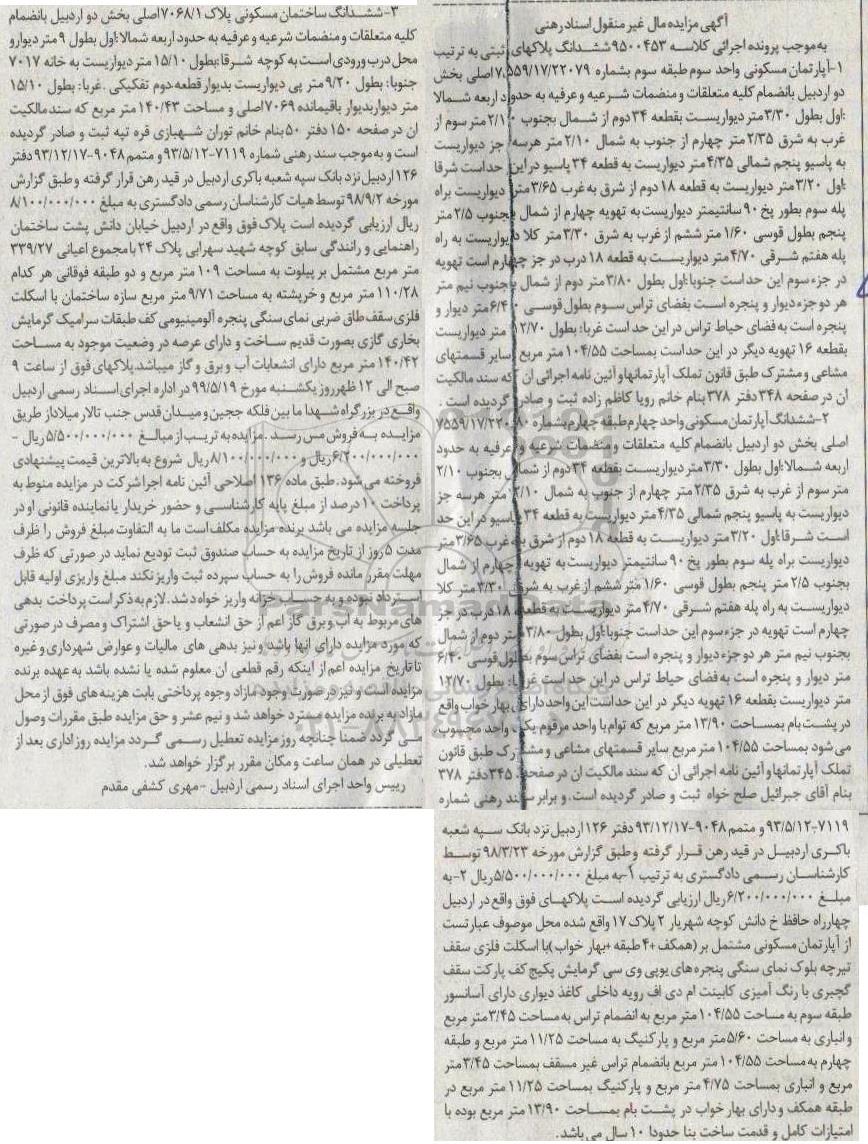 آگهی مزایده مال غیر منقول اسناد رهنی
به موجب پرونده اجرائی کلاسه ۹۵۰۰۴۵۳ ششدانگ پلاکهای ثبتی به ترتیب
۱-آپارتمان مسکونی واحد سوم طبقه سوم بشماره ۷۵۵۹/۱۷/۲۲۰۷۹ اصلی بخش
دو اردبیل بانضمام کلیه متعلقات و منضمات شرعیه و عرفیه به حدود اربعه شمالا
:اول بطول ۳/۳۰ متر دیواریست بقطعه ۳۴ دوم از شمال بجنوب ۲/۱۰ متر سوم از
غرب به شرق ۲/۳۵ متر چهارم از جنوب به شمال ۲/۱۰ متر هرسه جز دیواریست
به پاسیو پنجم شمالی ۴/۳۵ متر دیواریست به قطعه ۳۴ پاسیو در این حد است شرقا
:اول ۳/۲۰ متر دیواریست به قطعه ۱۸ دوم از شرق به غرب ۳/۶۵ متر دیواریست براه
پله سوم بطور پخ ۹۰ سانتیمتر دیواریست به تهویه چهارم از شمال بجنوب ۲/۵ متر
پنجم بطول قوسی ۱/۶۰ متر ششم از غرب به شرق ۳/۳۰ متر کلا دیواریست به راه
پله هفتم شرقی ۴/۷۰ متر دیواریست به قطعه ۱۸ درب در جز چهارم است تهویه
در جزء سوم این حد است جنوبا:اول بطول ۳/۸۰ متر دوم از شمال بجنوب نیم متر
هر دو جزء دیوار و پنجره است بفضای تراس سوم بطول قوسی ۶/۴۰ متر دیوار و
پنجره است به فضای حیاط تراس در این حد است غربا: بطول ۱۲/۷۰ متر دیواریست
بقطعه ۱۶ تهویه دیگر در این حداست بمساحت ۱۰۴/۵۵ متر مربع سایر قسمتهای
مشاعی و مشترک طبق قانون تملک آپارتمانها و آئین نامه اجرائی ان که سند مالکیت
ان در صفحه ۳۴۸ دفتر ۳۷۸ بنام خانم رویا کاظم زاده ثبت و صادر گردیده است .
۲-ششدانگ آپارتمان مسکونی واحد چهارم طبقه چهارم بشماره ۷۵۵۹/۱۷/۲۲۰۸۰
اصلی بخش دو اردبیل بانضمام کلیه متعلقات و منضمات شرعیه و عرفیه به حدود
اربعه شمالا:اول بطول ۳/۳۰ متر دیواریست بقطعه ۳۴ دوم از شمال بجنوب ۲/۱۰
متر سوم از غرب به شرق ۲/۳۵ متر چهارم از جنوب به شمال ۲/۱۰ متر هرسه جز
دیواریست به پاسیو پنجم شمالی ۴/۳۵ متر دیواریست به قطعه ۳۴ پاسیو در این حد
است شرقا:اول ۳/۲۰ متر دیواریست به قطعه ۱۸ دوم از شرق به غرب ۳/۶۵ متر
دیواریست براه پله سوم بطور پخ ۹۰ سانتیمتر دیواریست به تهویه چهارم از شمال
بجنوب ۲/۵ متر پنجم بطول قوسی ۱/۶۰ متر ششم از غرب به شرق ۳/۳۰ متر کلا
دیواریست به راه پله هفتم شرقی ۴/۷۰ متر دیواریست به قطعه ۱۸ درب در جز
چهارم است تهویه در جزء سوم این حد است جنوبا:اول بطول ۳/۸۰ متر دوم از شمال
بجنوب نیم متر هر دو جزء دیوار و پنجره است بفضای تراس سوم بطول قوسی ۶/۴۰
متر دیوار و پنجره است به فضای حیاط تراس در این حد است غربا: بطول ۱۲/۷۰
متر دیواریست بقطعه ۱۶ تهویه دیگر در این حداست این واحد دارای بهار خواب واقع
در پشت بام بمساحت ۱۳/۹۰ متر مربع که توام با واحد مرقوم یک واحد محسوب
می شود بمساحت ۱۰۴/۵۵ متر مربع سایر قسمتهای مشاعی و مشترک طبق قانون
تملک آپارتمانها و آئین نامه اجرائی ان که سند مالکیت ان در صفحه ۳۴۵ دفتر ۳۷۸
بنام آقای جبرائیل صلح خواه ثبت و صادر گردیده است. و برابر سند رهنی شماره
۷۱۱۹-۹۳/۵/۱۲ و متمم ۹۰۴۸-۹۳/۱۲/۱۷ دفتر ۱۲۶ اردبیل نزد بانک سپه شعبه
باکری اردبیل در قید رهن قرار گرفته و طبق گزارش مورخه ۹۸/۳/۲۳ توسط
کارشناسان رسمی دادگستری به ترتیب ۱-به مبلغ ۵/۵۰۰/۰۰۰/۰۰۰ ریال ۲-به
مبلغ ۶/۲۰۰/۰۰۰/۰۰۰ ریال ارزیابی گردیده است پلاکهای فوق واقع در اردبیل
چهارراه حافظ خ دانش کوچه شهریار ۲ پلاک ۱۷ واقع شده محل موصوف عبارتست
از آپارتمان مسکونی مشتمل بر (همکف +۴ طبقه +بهار خواب )با اسکلت فلزی سقف
تیرچه بلوک نمای سنگی پنجره های یوپی وی سی گرمایش پکیج کف پارکت سقف
گچبری با رنگ آمیزی کابینت ام دی اف رویه داخلی کاغذ دیواری دارای آسانسور
طبقه سوم به مساحت ۱۰۴/۵۵ متر مربع به انضمام تراس به مساحت ۳/۴۵ متر مربع
و انباری به مساحت ۵/۶۰ متر مربع و پارکنیگ به مساحت ۱۱/۲۵ متر مربع و طبقه
چهارم به مساحت ۱۰۴/۵۵ متر مربع بانضمام تراس غیر مسقف بمساحت ۳/۴۵ متر
مربع و انباری بمساحت ۴/۷۵ متر مربع و پارکنیگ بمساحت ۱۱/۲۵ متر مربع در
طبقه همکف و دارای بهار خواب در پشت بام بمساحت ۱۳/۹۰ متر مربع بوده با
امتیازات کامل و قدمت ساخت بنا حدودا ۱۰ سال می باشد.
۳-ششدانگ ساختمان مسکونی پلاک ۷۰۶۸/۱ اصلی بخش دو اردبیل بانضمام
کلیه متعلقات و منضمات شرعیه و عرفیه به حدود اربعه شمالا:اول بطول ۹ متر دیوارو
محل درب ورودی است به کوچه شرقا:بطول ۱۵/۱۰ متر دیواریست به خانه ۷۰۱۷
جنوبا: بطول ۹/۲۰ متر پی دیواریست بدیوار قطعه دوم تفکیکی .غربا: بطول ۱۵/۱۰
متر دیواربدیوار باقیمانده ۷۰۶۹ اصلی و مساحت ۱۴۰/۴۳ متر مربع که سند مالکیت
ان در صفحه ۱۵۰ دفتر ۵۰ بنام خانم توران شهبازی قره تپه ثبت و صادر گردیده
است و به موجب سند رهنی شماره ۷۱۱۹-۹۳/۵/۱۲ و متمم ۹۰۴۸-۹۳/۱۲/۱۷ دفتر
۱۲۶ اردبیل نزد بانک سپه شعبه باکری اردبیل در قید رهن قرار گرفته و طبق گزارش
مورخه ۹۸/۹/۲ توسط هیات کارشناسان رسمی دادگستری به مبلغ ۸/۱۰۰/۰۰۰/۰۰۰
ریال ارزیابی گردیده است پلاک فوق واقع در اردبیل خیابان دانش پشت ساختمان
راهنمایی و رانندگی سابق کوچه شهید سهرابی پلاک ۲۴ با مجموع اعیانی ۳۳۹/۲۷
متر مربع مشتمل بر پیلوت به مساحت ۱۰۹ متر مربع و دو طبقه فوقانی هر کدام
۱۱۰/۲۸ متر مربع و خرپشته به مساحت ۹/۷۱ متر مربع سازه ساختمان با اسکلت
فلزی سقف طاق ضربی نمای سنگی پنجره آلومینیومی کف طبقات سرامیک گرمایش
بخاری گازی بصورت قدیم ساخت و دارای عرصه در وضعیت موجود به مساحت
۱۴۰/۴۲ متر مربع دارای انشعابات آب و برق و گاز میباشد.پلاکهای فوق از ساعت ۹
صبح الی ۱۲ ظهر روز یکشنبه مورخ ۹۹/۵/۱۹ در اداره اجرای اسناد رسمی اردبیل
واقع در بزرگراه شهدا ما بین فلکه ججین و میدان قدس جنب تالار میلاد از طریق
مزایده به فروش می رسد . مزایده به تریب از مبالغ ۵/۵۰۰/۰۰۰/۰۰۰ ریال -
۶/۲۰۰/۰۰۰/۰۰۰ ریال و ۸/۱۰۰/۰۰۰/۰۰۰ ریال شروع به بالاترین قیمت پیشنهادی
فروخته می شود. طبق ماده ۱۳۶ اصلاحی آئین نامه اجرا شرکت در مزایده منوط به
پرداخت ۱۰ درصد از مبلغ پایه کارشناسی و حضور خریدار یا نماینده قانونی او در
جلسه مزایده می باشد برنده مزایده مکلف است ما به التفاوت مبلغ فروش را ظرف
مدت ۵ روز از تاریخ مزایده به حساب صندوق ثبت تودیع نماید در صورتی که ظرف
مهلت مقرر مانده فروش را به حساب سپرده ثبت واریز نکند مبلغ واریزی اولیه قابل
استرداد نبوده و به حساب خزانه واریز خواه دشد. لازم به ذکر است پرداخت بدهی
های مربوط به آب و برق گاز اعم از حق انشعاب و یا حق اشتراک و مصرف در صورتی
که مورد مزایده دارای انها باشد و نیز بدهی های مالیات و عوارض شهرداری و غیره
تا تاریخ مزایده اعم از اینکه رقم قطعی ان معلوم شده یا نشده باشد به عهده برنده
مزایده است و نیز در صورت وجود مازاد وجوه پرداختی بابت هزینه های فوق از محل
مازاد به برنده مزایده مسترد خواهد شد و نیم عشر و حق مزایده طبق مقررات وصول
می گردد ضمنا چنانچه روز مزایده تعطیل رسمی گردد مزایده روز اداری بعد از
تعطیلی در همان ساعت و مکان مقرر برگزار خواهد شد.
رییس واحد اجرای اسناد رسمی اردبیل -مهری کشفی مقدم